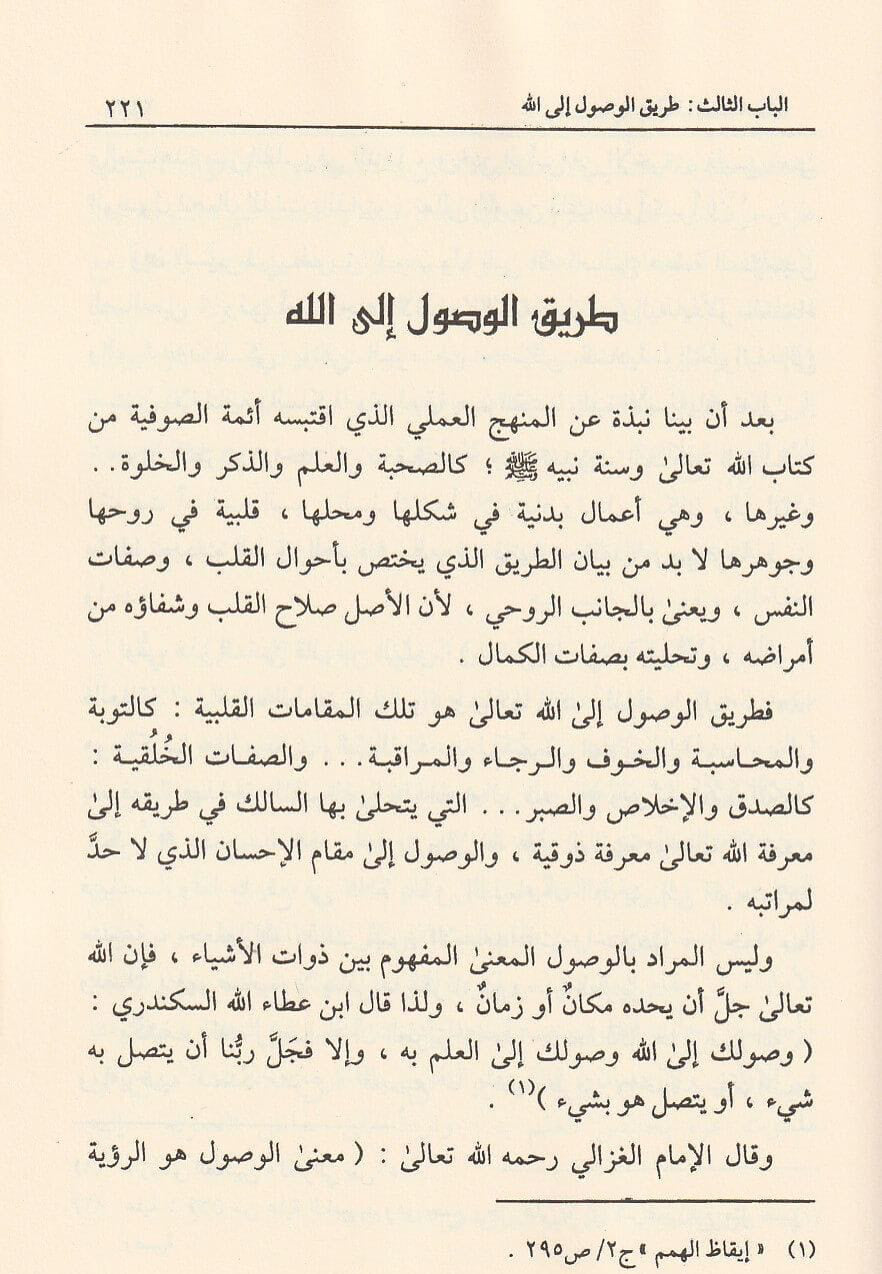 الباب الثالث: طريق الوصول إلى الله ٢٢١
طريق الوصول إلى الله
بعد أن بينا نبذة عن المنهج العملي الذي اقتبسه أئمة الصوفية من
كتاب الله تعالىٰ وسنة نبيه ﷺ ؛ كالصحبة والعلم والذكر والخلوة..
وغيرها ، وهي أعمال بدنية في شكلها ومحلها ، قلبية في روحها
وجوهرها لا بد من بيان الطريق الذي يختص بأحوال القلب ، وصفات
النفس ، ويعنىٰ بالجانب الروحي ، لأن الأصل صلاح القلب وشفاؤه من
أمراضه ، وتحليته بصفات الكمال .
فطريق الوصول إلىٰ الله تعالىٰ هو تلك المقامات القلبية : كالتوبة
والمحاسبة والخوف والرجاء والمراقبة... والصفات الخُلُقية :
كالصدق والإخلاص والصبر... التي يتحلىٰ بها السالك في طريقه إلىٰ
معرفة الله تعالىٰ معرفة ذوقية ، والوصول إلىٰ مقام الإحسان الذي لا حدَّ
لمراتبه .
وليس المراد بالوصول المعنىٰ المفهوم بين ذوات الأشياء ، فإن الله
تعالىٰ جلَّ أن يحده مكانٌ أو زمانٌ ، ولذا قال ابن عطاء الله السكندري :
( وصولك إلىٰ الله وصولك إلىٰ العلم به ، وإلا فجَلَّ ربُّنا أن يتصل به
شيء ، أو يتصل هو بشيء )(١) .
وقال الإمام الغزالي رحمه الله تعالىٰ : ( معنىٰ الوصول هو الرؤية
(١) « إيقاظ الهمم » ج٢/ ص٢٩٥ .